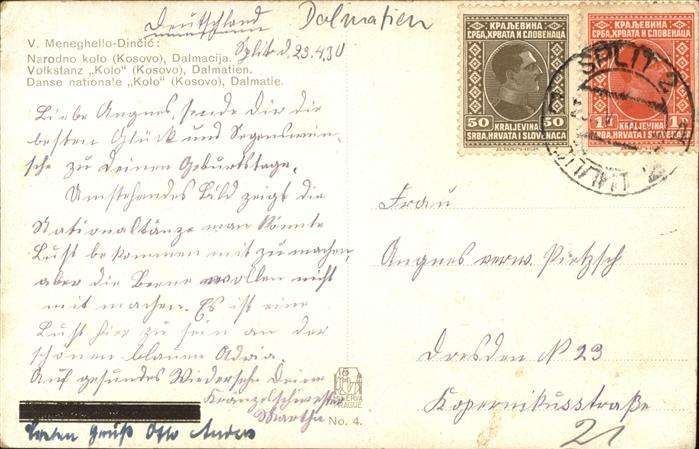 Deutschland
Dalmatien
V. Meneghello-Dinčić:
Split d. 23.4.30
Narodno kolo (Kosovo), Dalmacija.
Volkstanz „Kolo“ (Kosovo), Dalmatien.
Danse nationale „Kolo“ (Kosovo), Dalmatie.
Liebe Angnes, sende Dir die
besten Glück und Segenswün-
sche zu Deinen Geburtstage.
Umstehendes Bild zeigt die
Nationaltänze man könnte
Lust bekommen mit zu machen,
aber die Beene wollen nicht
mit machen. Es ist eine
Lust hier zu sein an der
schönen blauen Adria.
Auf gesundes Wiedersehn Deine
Kränzelschwester
Martha
Vielen Gruß Otto
No. 4.
КРАЉЕВИНА
СРБА, ХРВАТА И СЛОВЕНАЦА
50 50
KRALJEVINA
SRBA, HRVATA I SLOVENACA
КРАЉЕВИНА
СРБА, ХРВАТА И СЛОВЕНАЦА
1 1
KRALJEVINA
SRBA, HRVATA I SLOVENACA
SPLIT 2
Frau
Angnes verw. Pietzsch
Dresden N 23
Kopernikusstraße
21